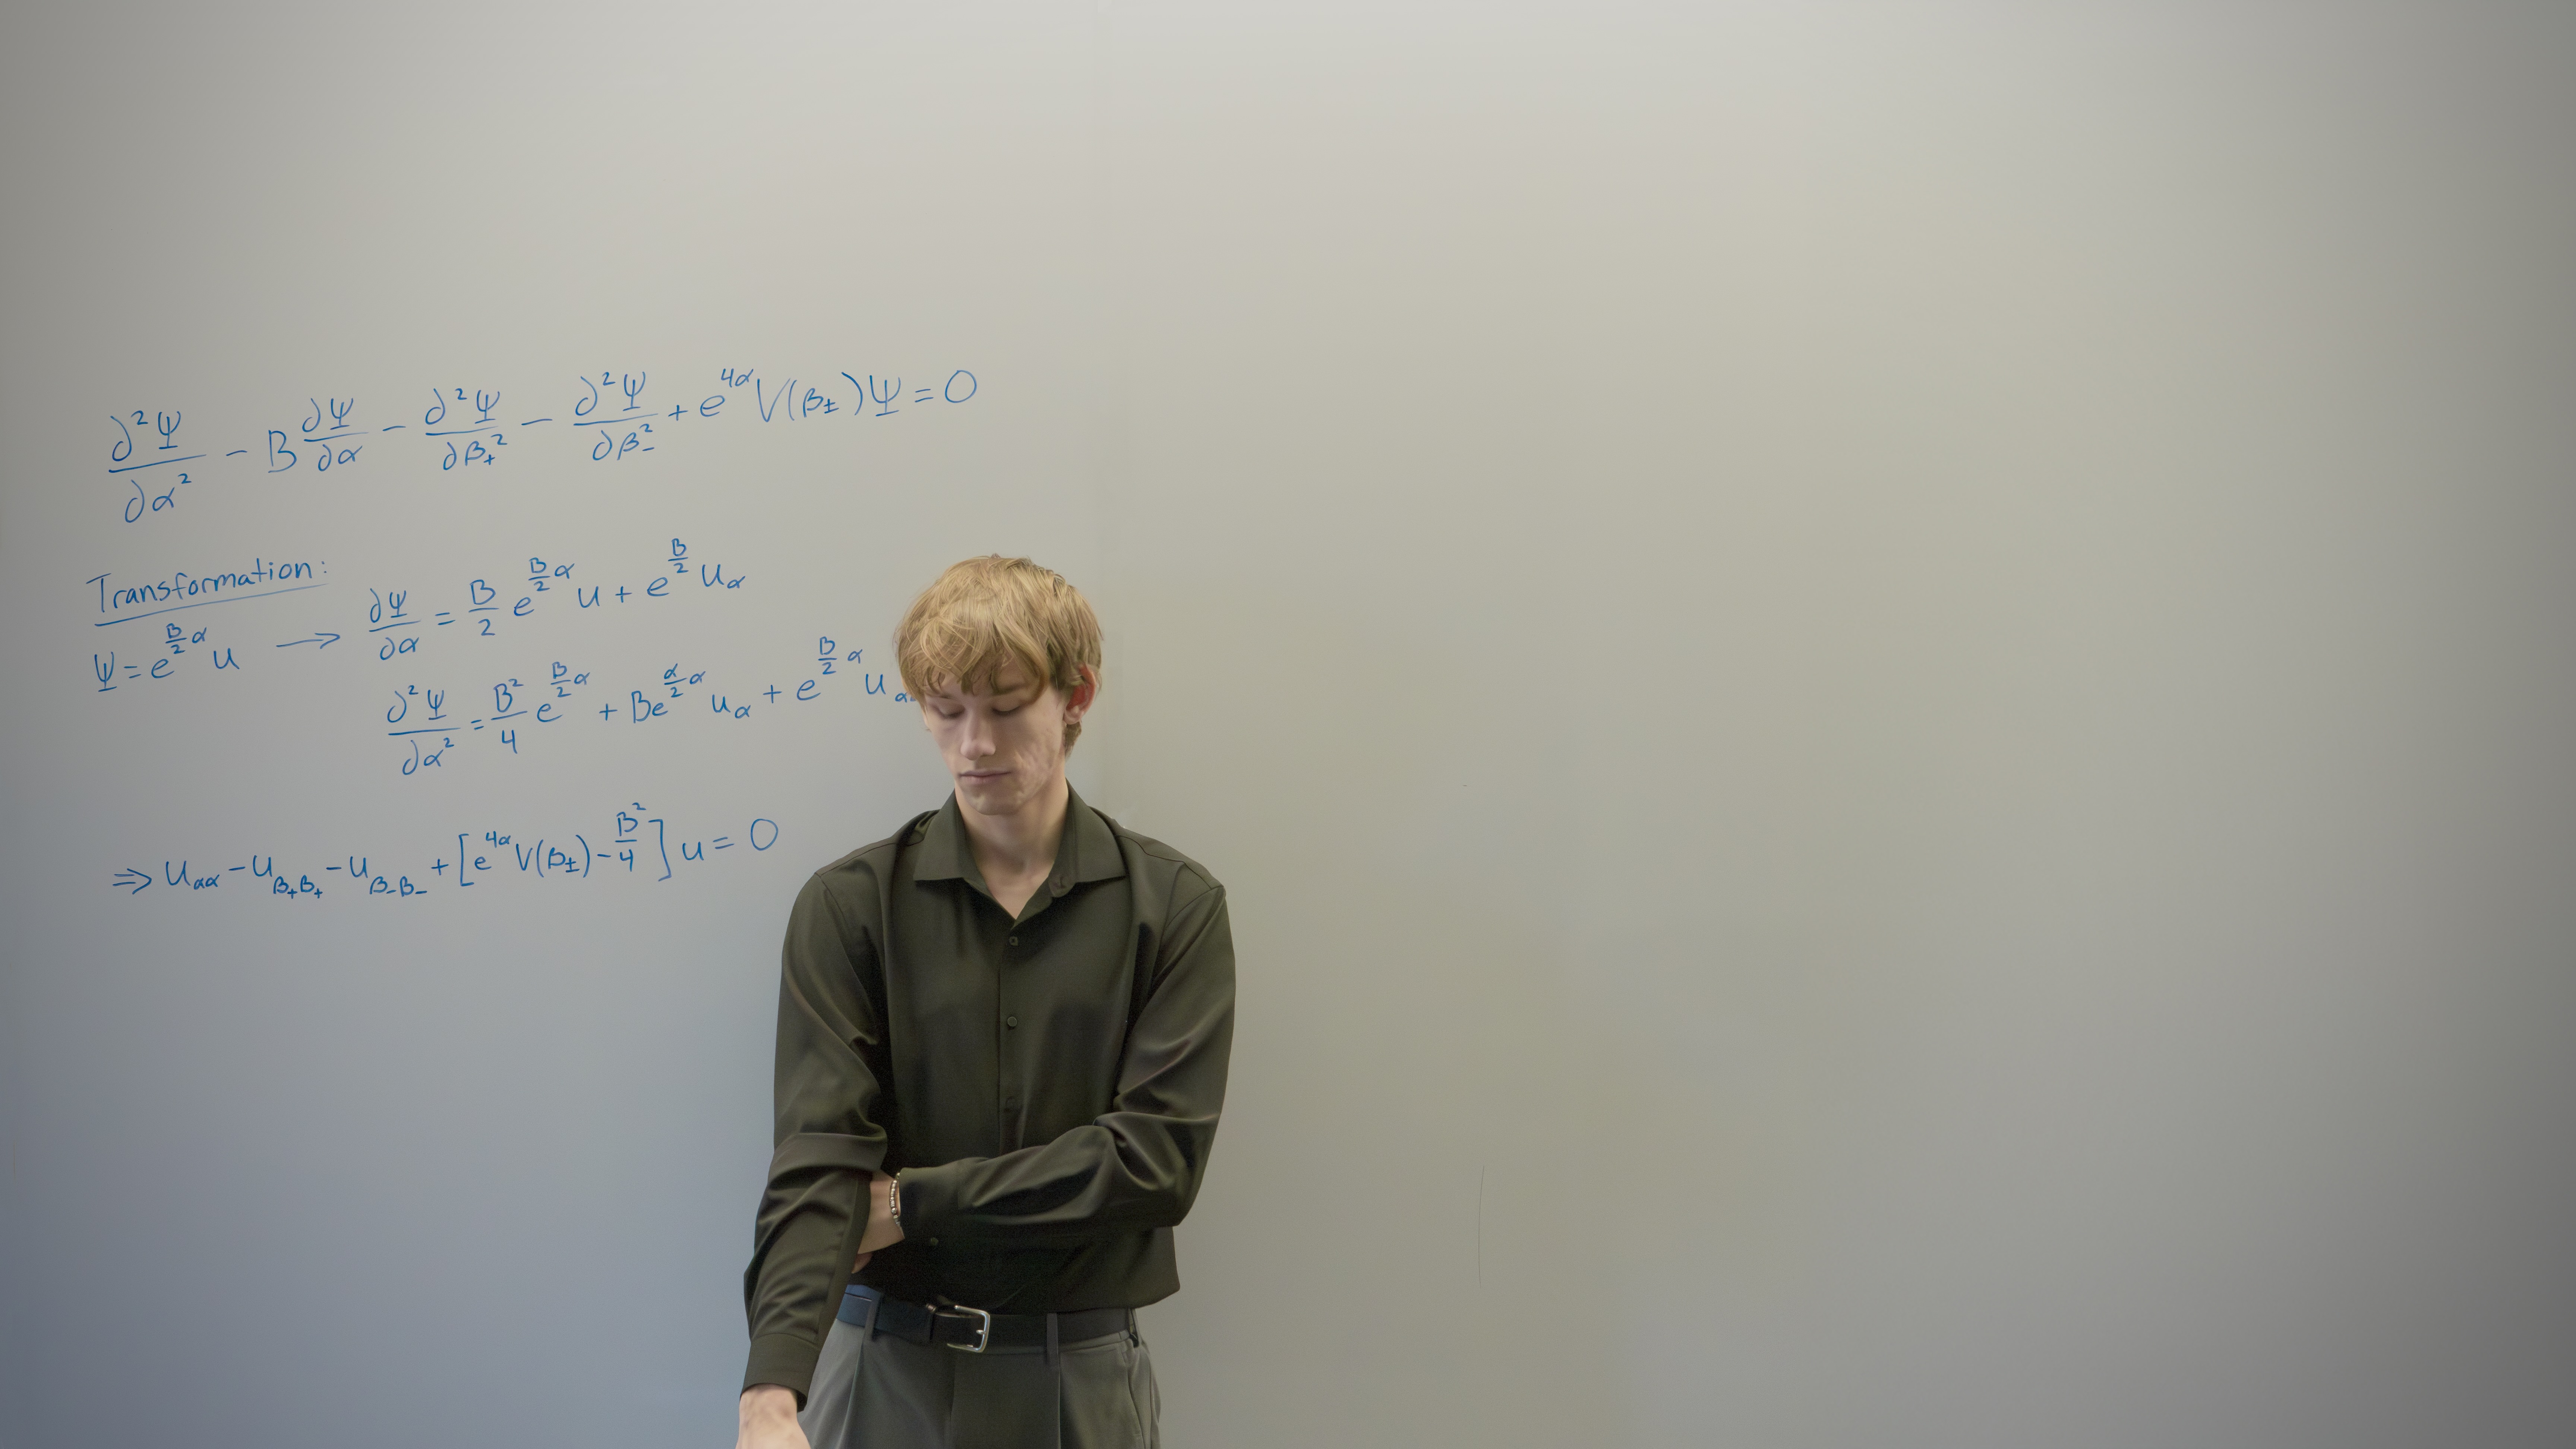 ∂²Ψ/∂α² − B ∂Ψ/∂α − ∂²Ψ/∂β₊² − ∂²Ψ/∂β₋² + e^{4α} V(β±)Ψ = 0
Transformation:
Ψ = e^{B/2 α} u → ∂Ψ/∂α = B/2 e^{B/2 α} u + e^{B/2} u_α
∂²Ψ/∂α² = B²/4 e^{B/2 α} + Be^{α/2 α} u_α + e^{B/2 α} u_α
⇒ u_{αα} − u_{β₊β₊} − u_{β₋β₋} + [e^{4α} V(β±) − B²/4] u = 0